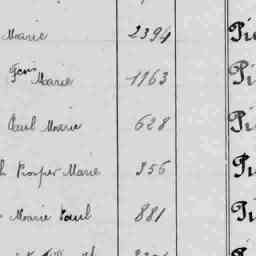 Marie 2394 Pi
Fçois Marie 1163 Pi
Paul Marie 628 Pi
h Prosper Marie 356 Pi
Marie Paul 881 Pi